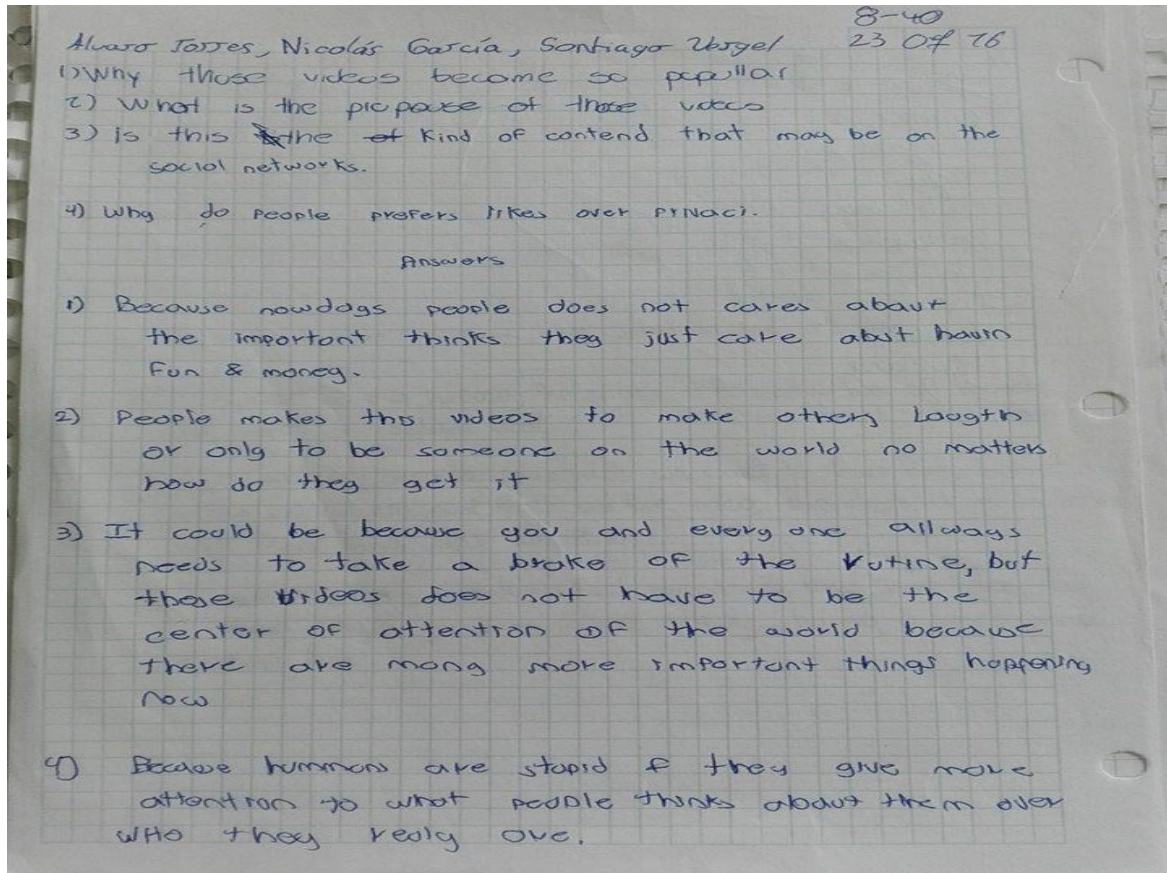 8-40
Alvaro Torres, Nicolás García, Santiago 23 04 16
1) Why those videos become so popullar
2) What is the propouse of those videos
3) is this the kind of contend that may be on the
social networks.
4) Why do people prefers likes over privaci.
Answers
1) Because nowdays people does not cares about
the important thinks they just care abut havin
fun & money.
2) People makes this videos to make others laugth
or only to be someone on the world no matters
how do they get it
3) It could be because you and every one allways
needs to take a brake of the rutine, but
these videos does not have to be the
center of attention of the world because
there are many more important things happening
now
4) Because hummans are stupid & they give more
attention to what people thinks about them over
WHO they realy are.